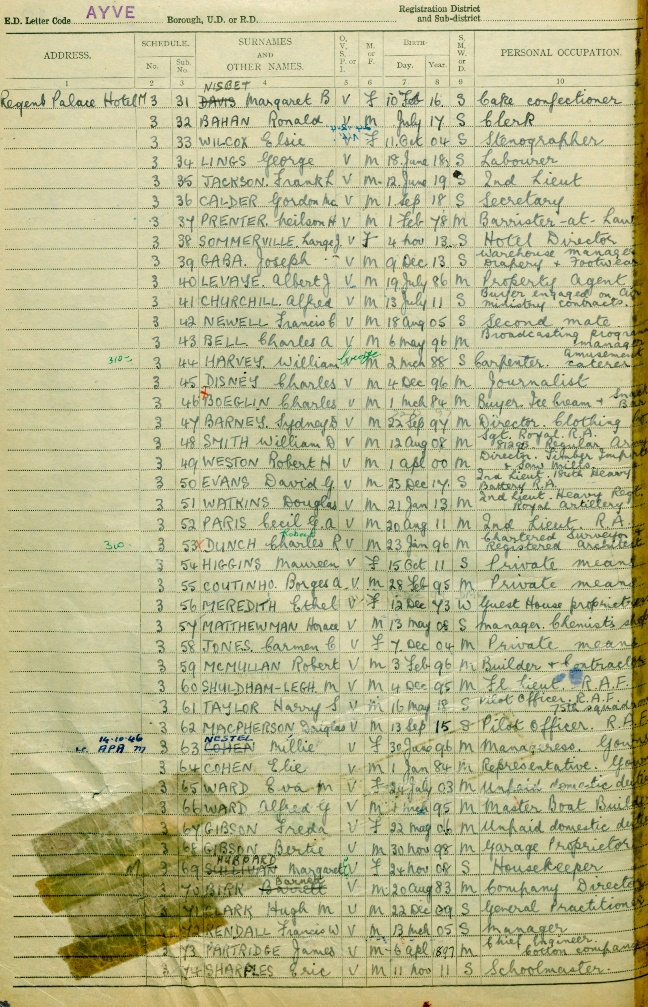 E.D. Letter Code AYVE Borough, U.D. or R.D. Registration District and Sub-district
ADDRESS. SCHEDULE. SURNAMES AND OTHER NAMES. O, V, S, P, or I. M. or F. BIRTH— S, M, W, or D. PERSONAL OCCUPATION.
No. Sub. No. Day. Year.
1 2 3 4 5 6 7 8 9 10
NISBET
Regent Palace Hotel 3 31 DAVIS Margaret B V F 10 Feb 16 S Cake confectioner
3 32 BAHAN Ronald V M July 17 S Clerk
3 33 WILCOX Elsie F 11 Oct 04 S Stenographer
3 34 LINGS George V M 18 June 18 S Labourer
3 35 JACKSON. Frank L V M 12 June 19 S 2nd Lieut
3 36 CALDER Gordon V M 1 Sep 18 S Secretary
3 37 PRENTER. Neilson H V M 1 Feb 78 M Barrister-at-Law
3 38 SOMMERVILLE. V F 4 Nov 13 S Hotel Director
3 39 GABA. Joseph V M 9 Dec 13 S Warehouse manager Drapery & Footwear
3 40 LEVAYE. Albert J V M 19 July 86 M Property Agent
3 41 CHURCHILL Alfred V M 13 July 11 S Buyer engaged on military contracts.
3 42 NEWELL Francis C V M 18 Aug 05 S Second mate
3 43 BELL. Charles A V M 6 May 96 M Broadcasting program manager
310 3 44 HARVEY. William George M 2 Mch 88 S Carpenter. Amusement caterer
3 45 DISNEY Charles V M 4 Dec 96 M Journalist
3 46 BOEGLIN Charles V M 1 Mch 84 M Buyer. Ice Cream & Snack Bar
3 47 BARNEY. Sydney D V M 22 Sep 97 M Director. Clothing
3 48 SMITH William D V M 12 Aug 08 M Sgt. Royal. R.A. Regular Army
3 49 WESTON Robert H V M 1 Apl 00 M Director. Timber Import & Saw Mills
3 50 EVANS David G V M 23 Dec 17 S 2nd Lieut. Heavy Battery R.A.
3 51 WATKINS Douglas V M 21 Jan 13 M 2nd Lieut. Heavy Regt. Royal Artillery
3 52 PARIS Cecil G. A V M 20 Aug 11 M 2nd Lieut. R.A.
310 3 53 DUNCH Charles R Robert V M 23 Jan 96 M Chartered Surveyor Registered Architect
3 54 HIGGINS Maureen V F 15 Oct 11 S Private means
3 55 COUTINHO. Borges A V M 28 Feb 95 M Private means
3 56 MEREDITH Ethel V F 12 Dec 73 W Guest House proprietress
3 57 MATTHEWMAN Horace V M 13 May 08 S Manager. Chemists shop
3 58 JONES. Carmen C V F 7 Dec 04 M Private means
3 59 MCMULLAN Robert V M 3 Feb 96 M Builder & Contractor
3 60 SHULDHAM-LEGH. M V M 4 Dec 95 M Fl Lieut R.A.F.
3 61 TAYLOR Harry S V M 16 May 18 S Pilot Officer. R.A.F. squadron
3 62 MACPHERSON Douglas V M 13 Sep 15 S Pilot Officer. R.A.F
14-10-46 NESTEL
APA M 3 63 COHEN Millie V F 30 June 96 M Manageress. Gown
3 64 COHEN Elie V M 1 Jan 84 M Representative. Gown
3 65 WARD Eva M V F 24 July 03 M Unpaid domestic duties
3 66 WARD Alfred G V M 95 M Master Boat Builder
3 67 GIBSON Freda V F 22 May 06 M Unpaid domestic duties
3 68 GIBSON Bertie V M 30 Nov 98 M Garage Proprietor
HUBBARD
3 69 SULLIVAN Margaret F 24 Nov 08 S Housekeeper
3 70 BIRK Barnett V M 20 Aug 83 M Company Director
71 CLARK Hugh M V M 22 Dec 09 S General Practitioner
72 KENDALL Francis W V M 13 Mch 05 S Manager
3 73 PARTRIDGE James V M 6 Apl 1897 M Chief Engineer Cotton company
3 74 SHARPLES Eric V M 11 Nov 11 S Schoolmaster.